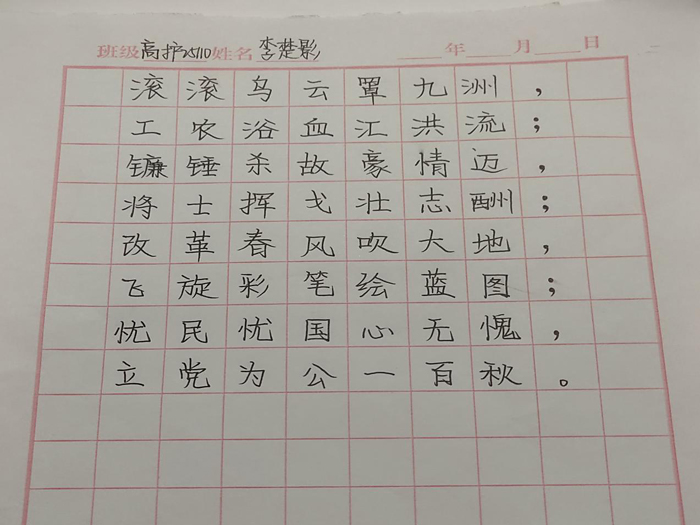 班级高护2510姓名李楚影 年 月 日
滚滚鸟云罩九洲，
工农浴血汇洪流；
镰锤杀故豪情迈，
将士挥戈壮志酬；
改革春风吹大地，
飞旋彩笔绘蓝图；
忧民忧国心无愧，
立党为公一百秋。